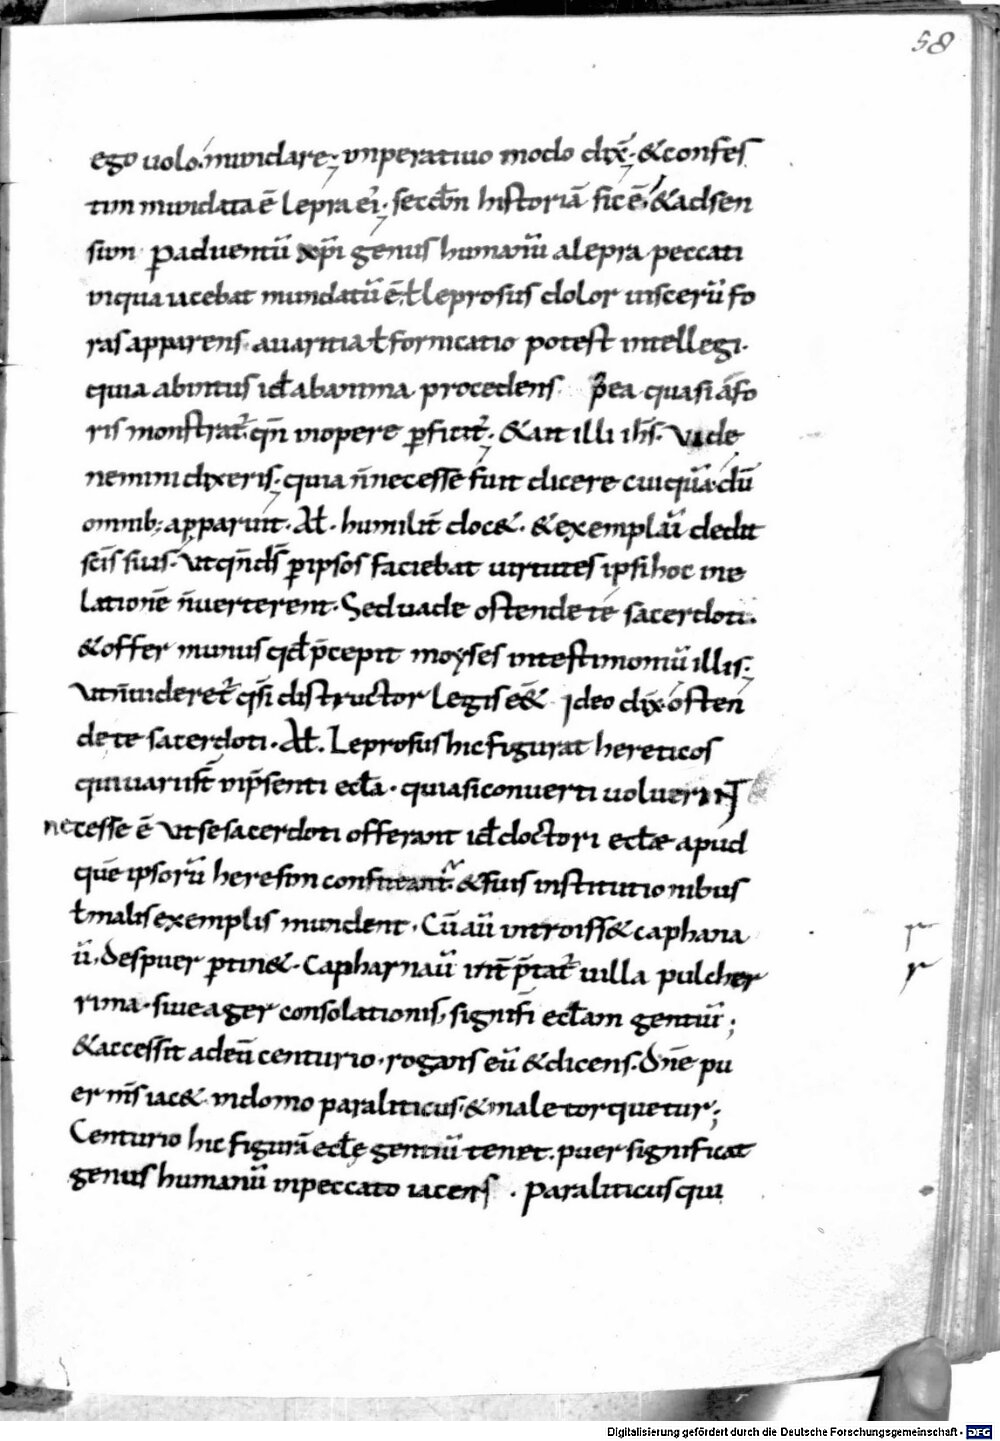 58
ego uolo. mundare; inperatiuo modo dix̄; & confes
tim mundata ē lepra ei'; sec̄d̄n historiā sic ē; & ad sen
sum p̱ aduentū xp̄i genus humanū a lepra peccati
in qua iacebat mundatū ē; ƚ leprosus dolor uiscerū fo
ras apparens. auaritia ƚ fornicatio potest intellegi.
quia abintus id̄ ab anima procedens. p̄ea quasi afo
ris monstrat̄. qn̄ in opere p̱ficit̄; & ait illi ih̄s. Vide
nemini dixeris; quia n̄ necesse fuit dicere cuiquā. dū
omnib; apparuit. Aƚ. humilit̄ doc&. & exemplū dedit
sc̄is suis. Vt qn̄ d̄s p̱ ipsos faciebat uirtutes ipsi hoc in e
latione n̄ uerterent. Sed uade ostende te sacerdoti.
& offer munus qd̄ p̄cepit moyses in testimoniū illis;
Vt n̄ uideret̄ qsi distructor legis ēē&. Ideo dix̄ osten
de te sacerdoti. Aƚ. Leprosus hic figurat hereticos
qui uarii st̄ in p̄senti eccƚa. qui asi conuerti uoluerint
necesse ē Vt se sacerdoti offerant id̄ doctori eccƚae apud
quē ipsorū heresim confutant̄. & suis institutionibus
ƚ malis exemplis mundent. Cū aū introiss& capharna
ū, despuer p̱tin&. Capharnaū int̄p̄tat̄ uilla pulcher
rima. siue ager consolationis, signif̄ eccƚam gentiū;
& accessit ad eū centurio. rogans eū & dicens. Dn̄e pu
er m̄s iac& in domo paraliticus. & male torquetur;
Centurio hic figurā eccƚę gentiū tenet. puer significat
genus humanū in peccato iacens. Paraliticus qui
Digitalisierung gefördert durch die Deutsche Forschungsgemeinschaft - DFG